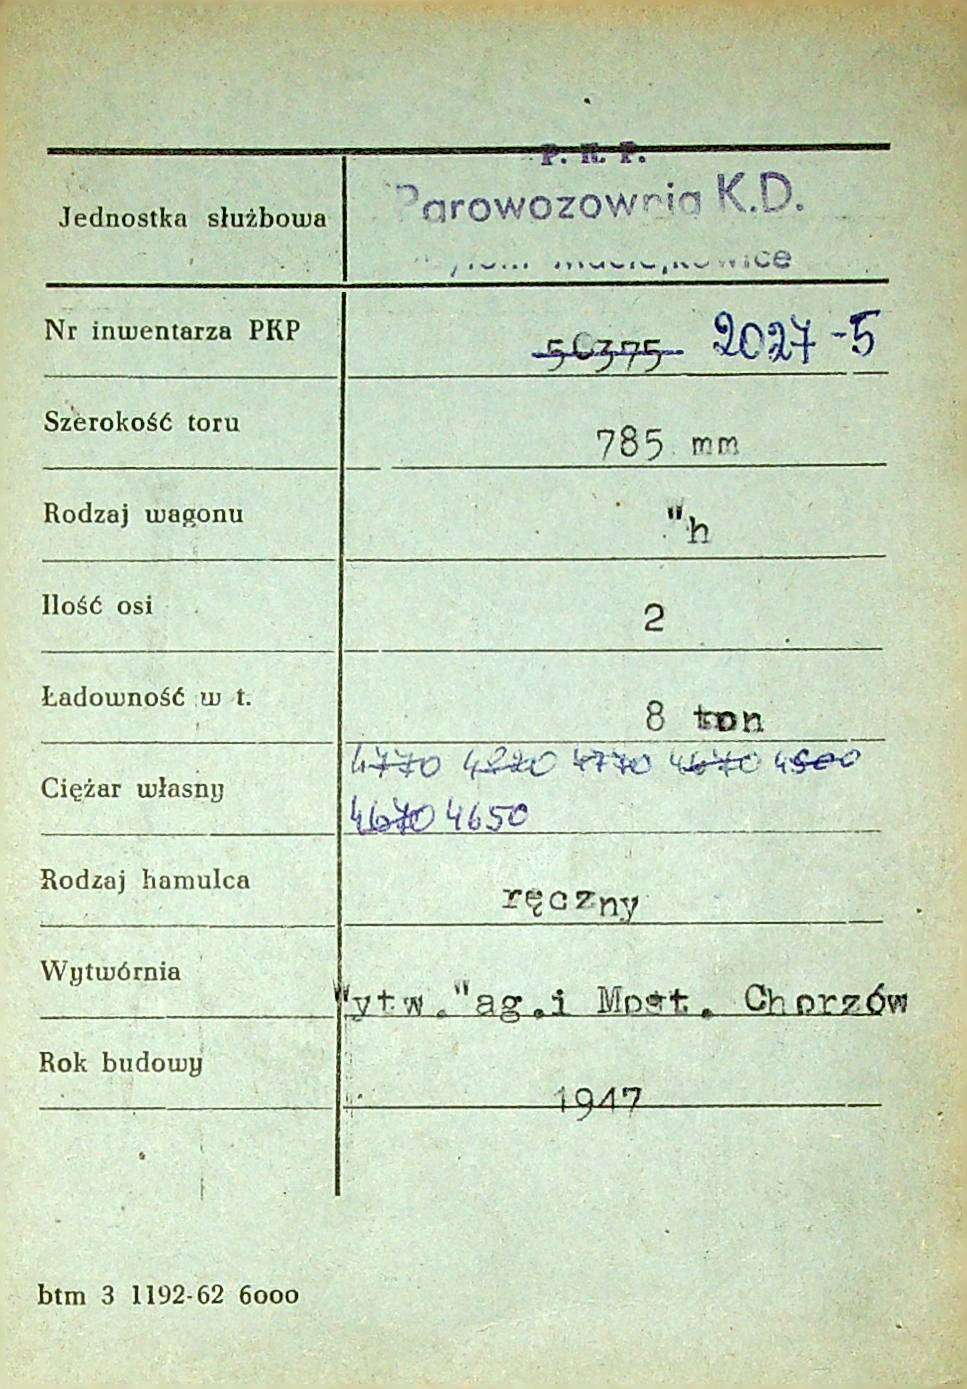 P. K. P.
Jednostka służbowa Parowozownia K.D.
Nr inwentarza PKP 50375 2027-5
Szerokość toru 785 mm
Rodzaj wagonu "h
Ilość osi 2
Ładowność w t. 8 ton
4770 4220 4770 4670 4500
Ciężar własny
4670 4650
Rodzaj hamulca ręczny
Wytwórnia "ytw."ag.i Most. Chorzów
Rok budowy 1947
btm 3 1192-62 6000